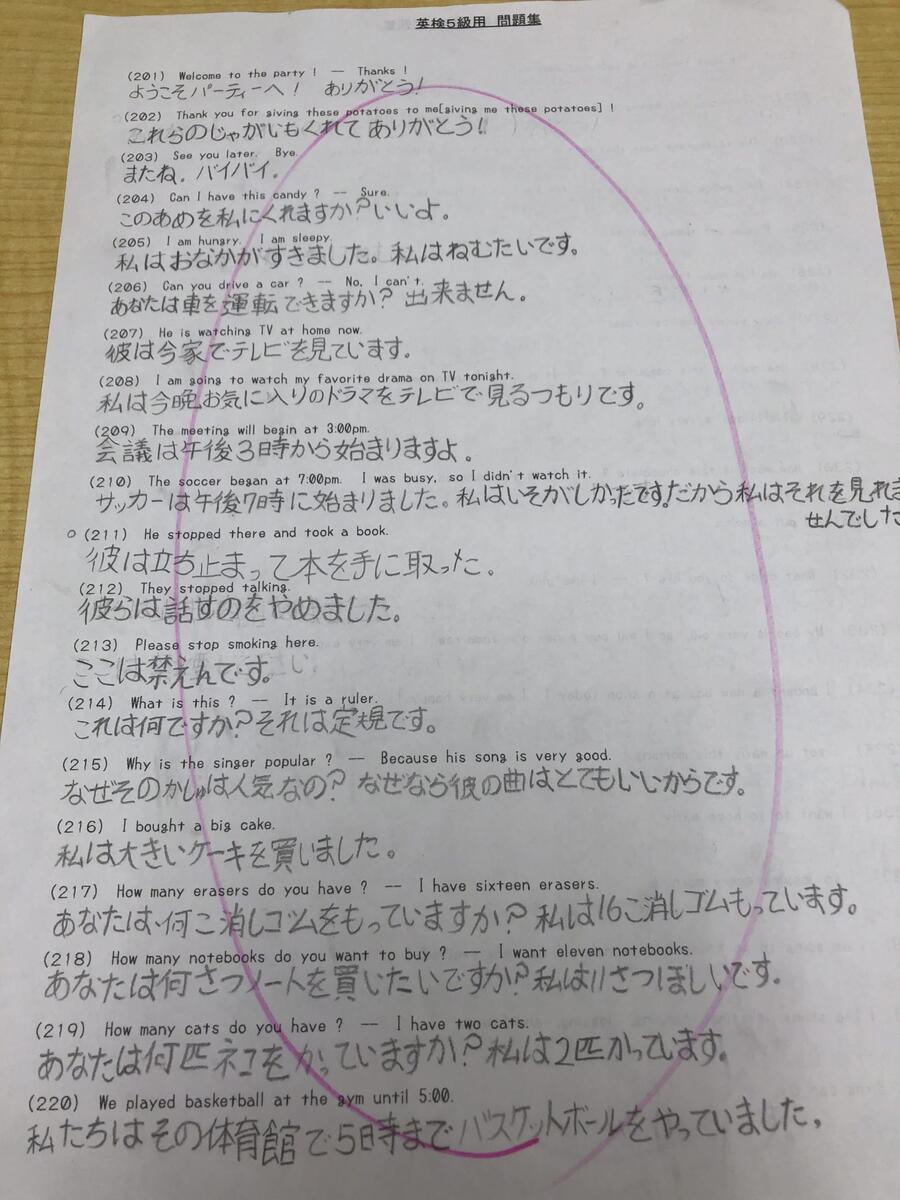 英検5級用 問題集
(201) Welcome to the party ! -- Thanks !
ようこそパーティーへ! ありがとう!
(202) Thank you for giving these potatoes to me[giving me these potatoes] !
これらのじゃがいもくれてありがとう!
(203) See you later. Bye.
またね。バイバイ。
(204) Can I have this candy ? -- Sure.
このあめを私にくれますか?いいよ。
(205) I am hungry. I am sleepy.
私はおなかがすきました。私はねむたいです。
(206) Can you drive a car ? -- No, I can't.
あなたは車を運転できますか? 出来ません。
(207) He is watching TV at home now.
彼は今家でテレビを見ています。
(208) I am going to watch my favorite drama on TV tonight.
私は今晩お気に入りのドラマをテレビで見るつもりです。
(209) The meeting will begin at 3:00pm.
会議は午後3時から始まりますよ。
(210) The soccer began at 7:00pm. I was busy, so I didn't watch it.
サッカーは午後7時に始まりました。私はいそがしかったです。だから私はそれを見れま
せんでした
(211) He stopped there and took a book.
彼は立ち止まって本を手に取った。
(212) They stopped talking.
彼らは話すのをやめました。
(213) Please stop smoking here.
ここは禁えんです。
(214) What is this ? -- It is a ruler.
これは何ですか?それは定規です。
(215) Why is the singer popular ? -- Because his song is very good.
なぜそのかしゅは人気なの? なぜなら彼の曲はとてもいいからです。
(216) I bought a big cake.
私は大きいケーキを買いました。
(217) How many erasers do you have ? -- I have sixteen erasers.
あなたは、何こ消しゴムをもっていますか? 私は16こ消しゴムもっています。
(218) How many notebooks do you want to buy ? -- I want eleven notebooks.
あなたは何さつノートを買いたいですか?私は11さつほしいです。
(219) How many cats do you have ? -- I have two cats.
あなたは何匹ネコをかっていますか?私は2匹かっています。
(220) We played basketball at the gym until 5:00.
私たちはその体育館で5時までバスケットボールをやっていました。